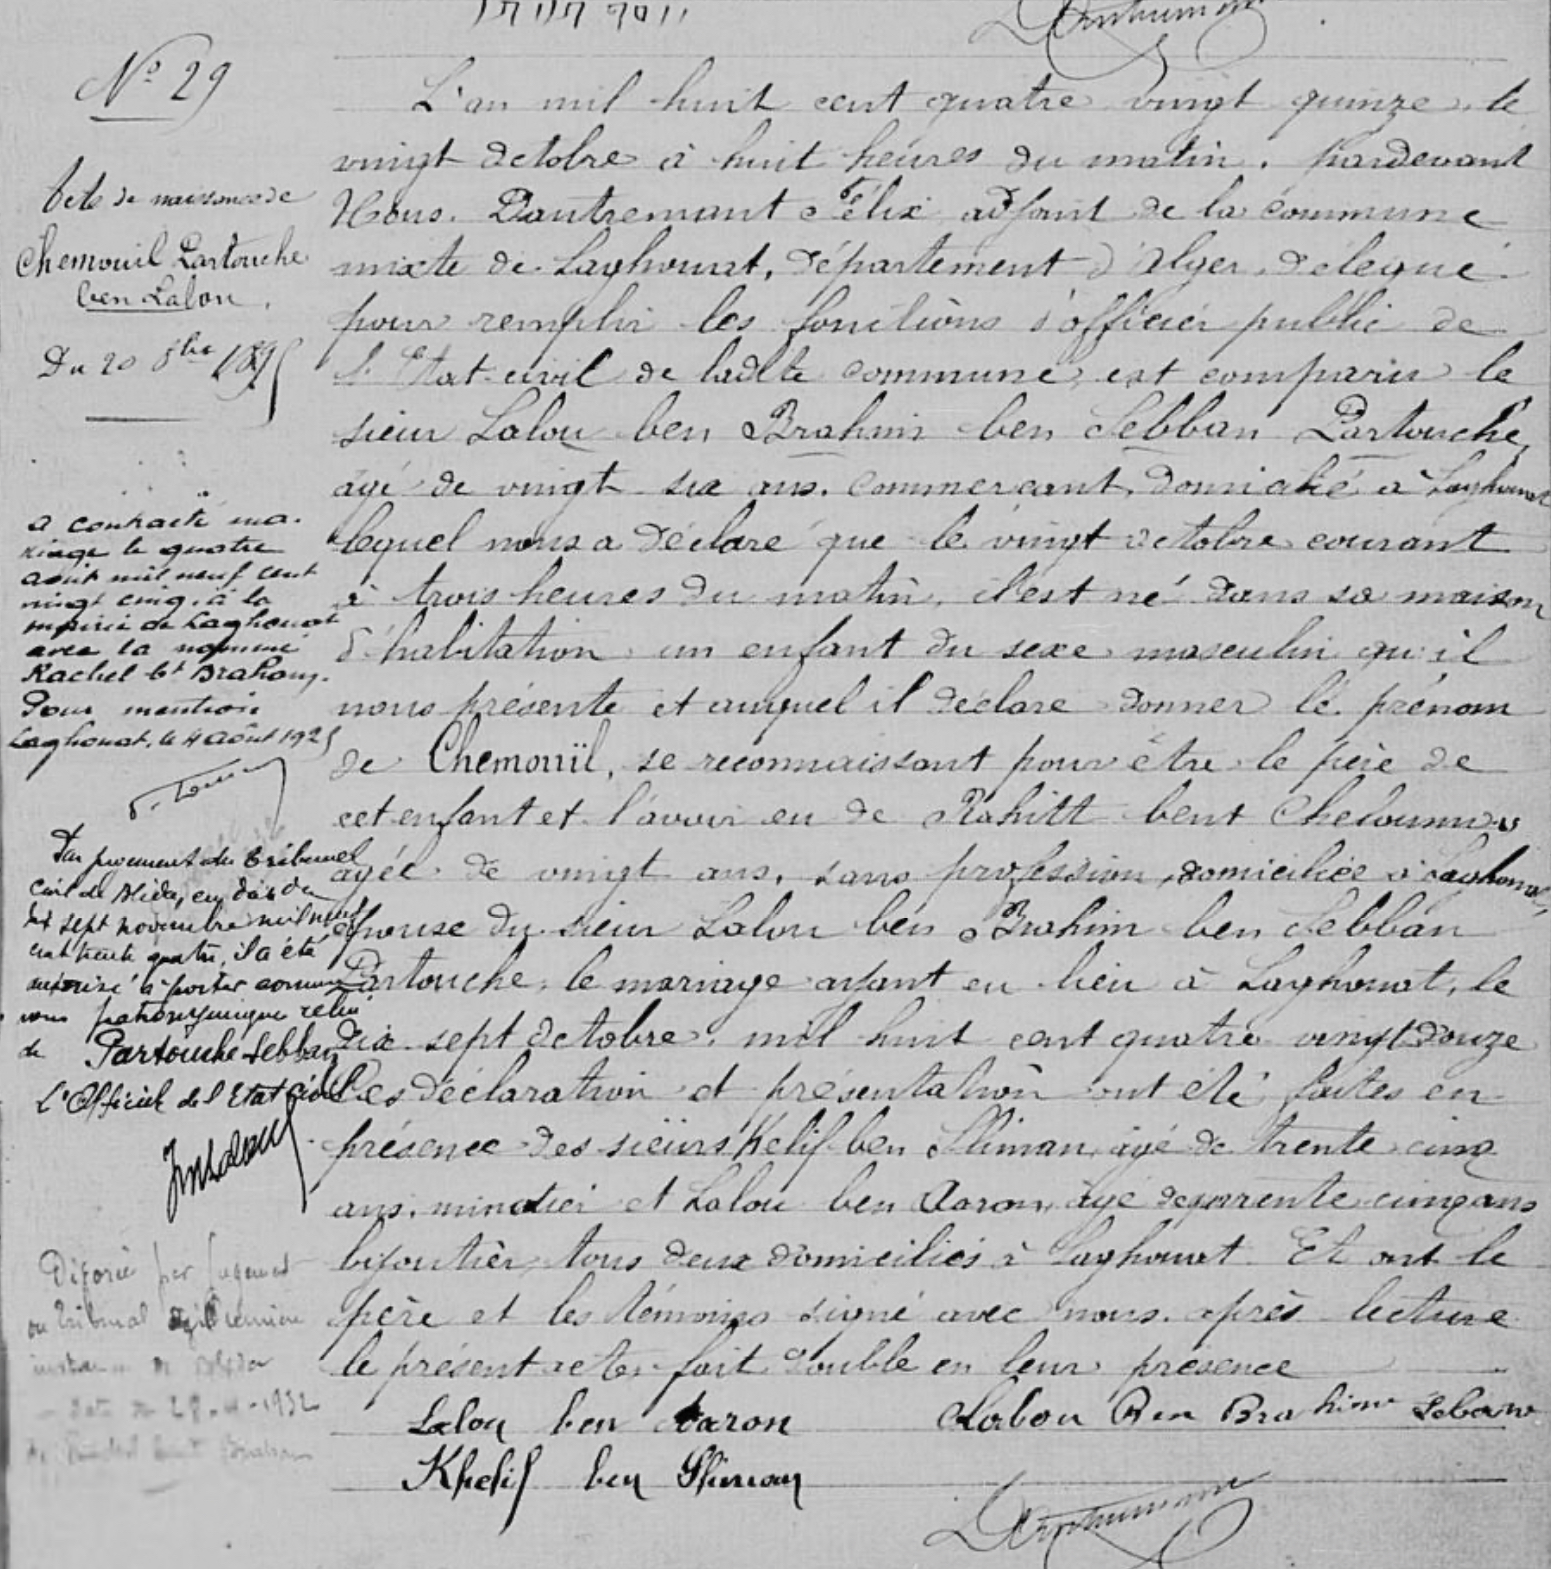 N° 29
Acte de naissance de
Chemouïl Partouche
ben Lalou.
Du 20 8bre 1895
L'an mil huit cent quatre vingt quinze, le
vingt octobre à huit heures du matin. pardevant
Nous. Dautremant Félix adjoint de la commune
mixte de Laghouat, département d'Alger, délégué
pour remplir les fonctions d'officier public de
l'Etat-civil de ladite commune, est comparu le
sieur Lalou ben Brahim ben Sebban Partouche,
agé de vingt six ans. commerçant, domicilié à Laghouat
lequel nous a déclaré que le vingt octobre courant
à trois heures du matin, il est né dans sa maison
d'habitation un enfant du sexe masculin qu'il
nous présente et auquel il déclare donner le prénom
de Chemouïl, se reconnaissant pour être le père de
cet enfant et l'avoir eu de Rahilt bent Cheloumou
agée de vingt ans, sans profession, domiciliée à Laghouat,
épouse du sieur Lalou ben Brahim ben Sebban
Partouche, le mariage ayant eu lieu à Laghouat, le
dix sept octobre mil huit cent quatre vingt douze
Les déclaration et présentation ont été faites en
présence des sieurs Kelif ben Sliman, agé de trente cinq
ans. minotier et Lalou ben Aaron, agé de quarente cinq ans
bijoutier, tous deux domiciliés à Laghouat. Et ont le
père et les témoins signé avec nous. après lecture
le présent acte fait double en leur présence
Lalou ben Aaron
Khelif ben Sliman
Lalou Ben Brahim Seban
a contracté ma-
riage le quatre
août mil neuf cent
vingt cinq, à la
mairie de Laghouat
avec la nommée
Rachel bt Brahoum.
Pour mention
Laghouat, le 4 Août 1925
Par jugement du tribunal
civil de Blida, en date du
dix sept novembre mil neuf
cent trente quatre, il a été
autorisé à porter comme
nom patronymique celui
de Partouche-Sebban
L'Officier de l'Etat civil
Divorcé par jugement
du tribunal de première
instance de Blida
date du 28 - 1932